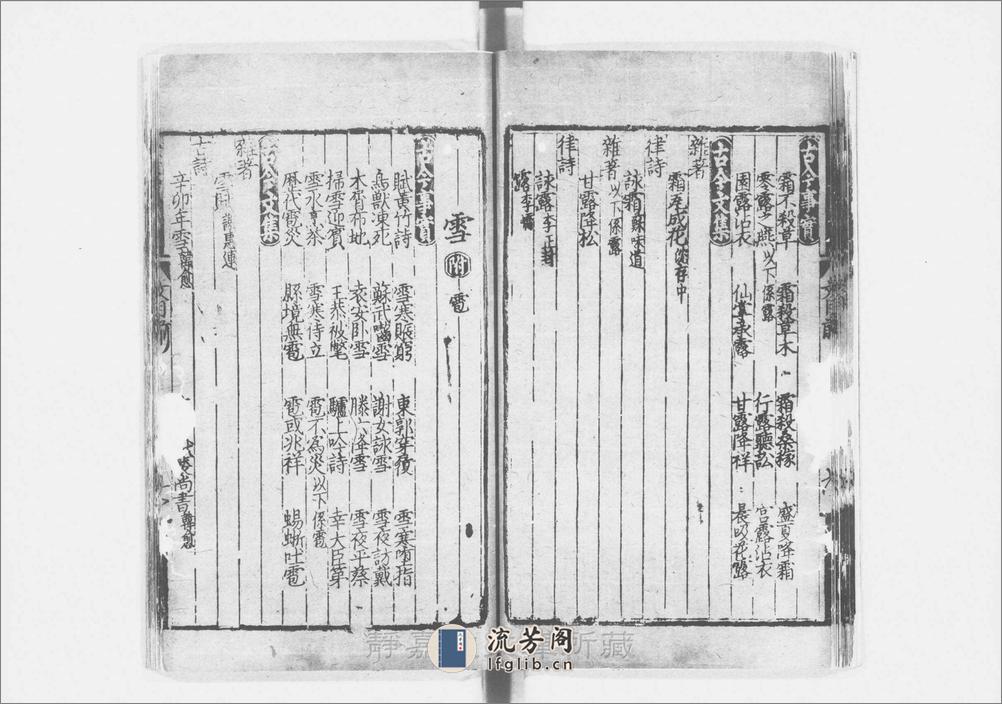 古今事實
霜不殺草 霜殺草木 霜殺桑 盛夏降霜
零露之燕以下係露 行露聽訟 露沾衣
園露沾衣 仙掌承露 甘露降祥
古今文集
雜著
霜
律詩
詠霜蘇味道
雜著以下係露
甘露降松
律詩
詠露李正封
露李嶠
雪附雹
古今事實
賦黃竹詩 雪寒賑窮 東郭穿履 雪寒墮指
鳥獸凍死 蘇武囓雪 謝女詠雪 雪夜訪戴
木冐布地 袁安臥雪 滕六降雪 雪夜平蔡
掃雪迎賓 王恭被氅 驢上吟詩 幸大臣第
雪水烹茶 雪寒侍立 雹不為災以下係雹
歷代雹災 縣境無雹 雹或兆祥 蜥蜴吐雹
古今文集
雜著
雪賦謝惠連
古詩
辛卯年雪韓愈 尚書韓愈
靜嘉 所藏
流芳阁
lfglib.cn